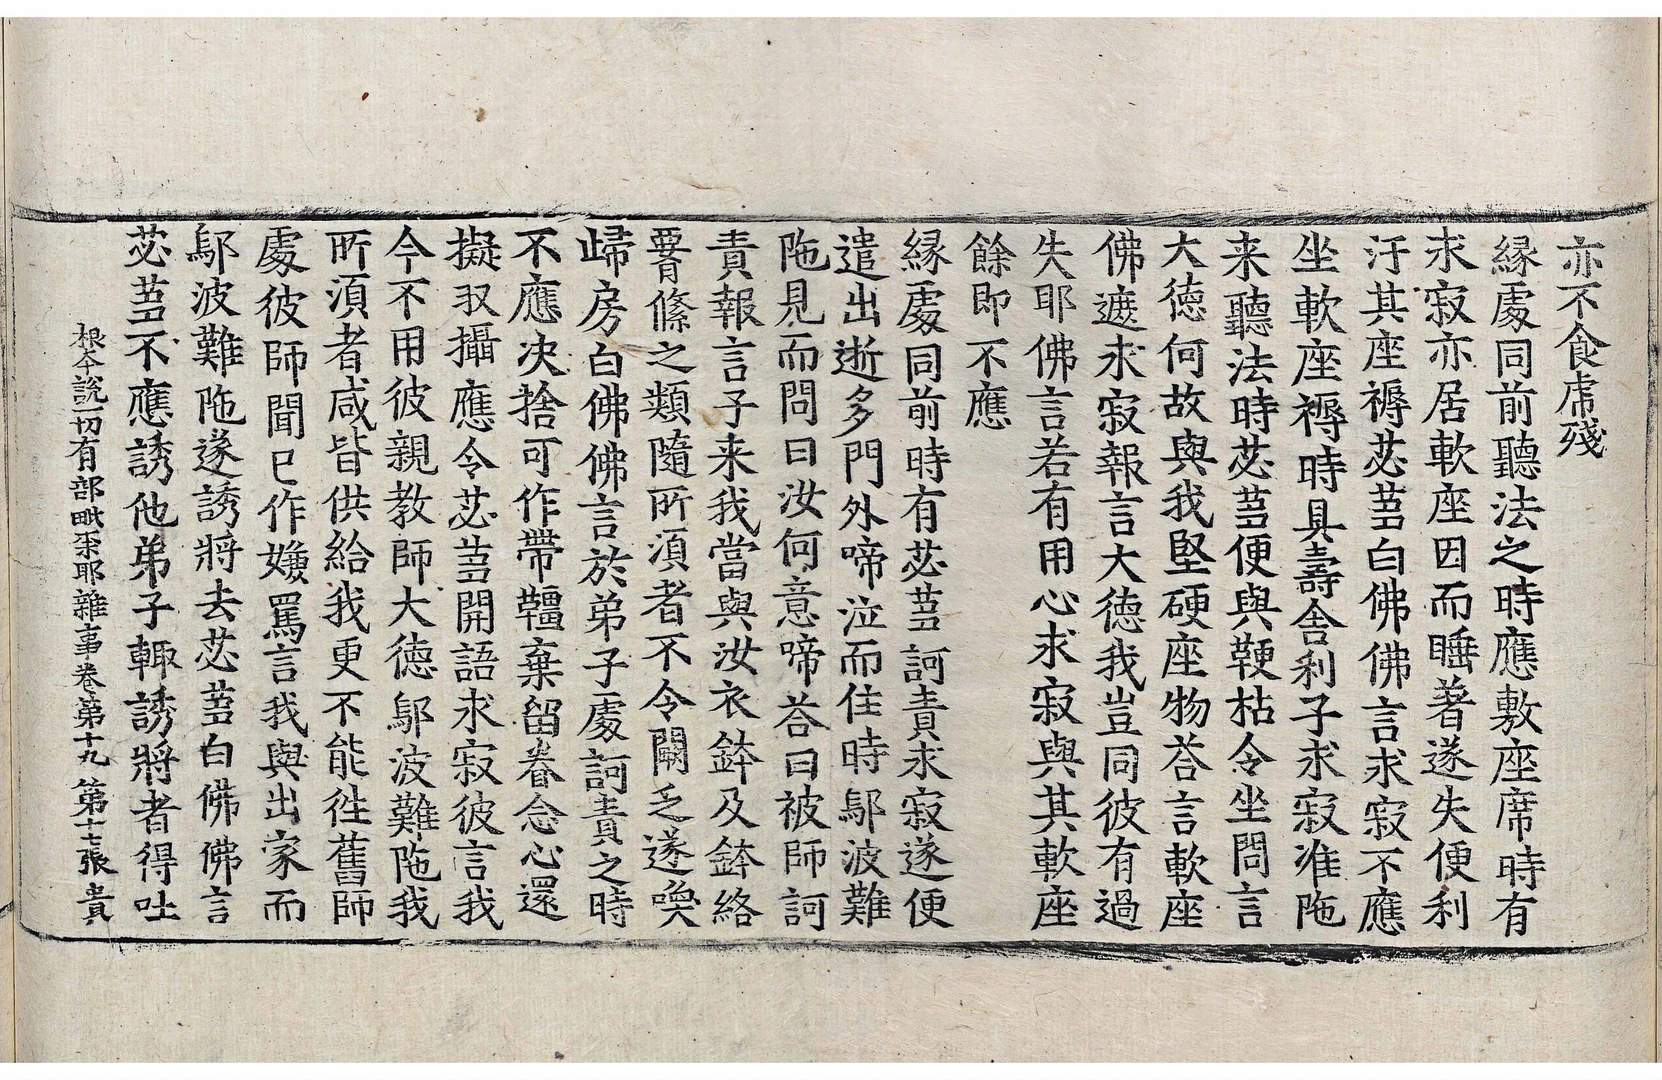 亦不食虎殘
緣處同前聽法之時應敷座席時有
求寂亦居軟座因而睡著遂失便利
汙其座褥苾芻白佛佛言求寂不應
坐軟座褥時具壽舍利子求寂准陁
来聽法時苾芻便與鞕枯令坐問言
大德何故與我堅硬座物荅言軟座
佛遮求寂報言大德我豈同彼有過
失耶佛言若有用心求寂與其軟座
餘即不應
緣處同前時有苾芻訶責求寂遂便
遣出逝多門外啼泣而住時鄔波難
陁見而問曰汝何意啼荅曰被師訶
責報言子来我當與汝衣鉢及鉢絡
署絛之類隨所湏者不令闕乏遂喚
歸房白佛佛言於弟子處訶責之時
不應决捨可作帶韁棄留眷念心還
擬収攝應令苾芻開語求寂彼言我
今不用彼親教師大德鄔波難陁我
所湏者咸皆供給我更不能徃舊師
處彼師聞已作嫌罵言我與出家而
鄔波難陁遂誘將去苾芻白佛佛言
苾芻不應誘他弟子輙誘將者得吐
根本說一切有部毗柰耶雜事卷第十九 第十七張 貴